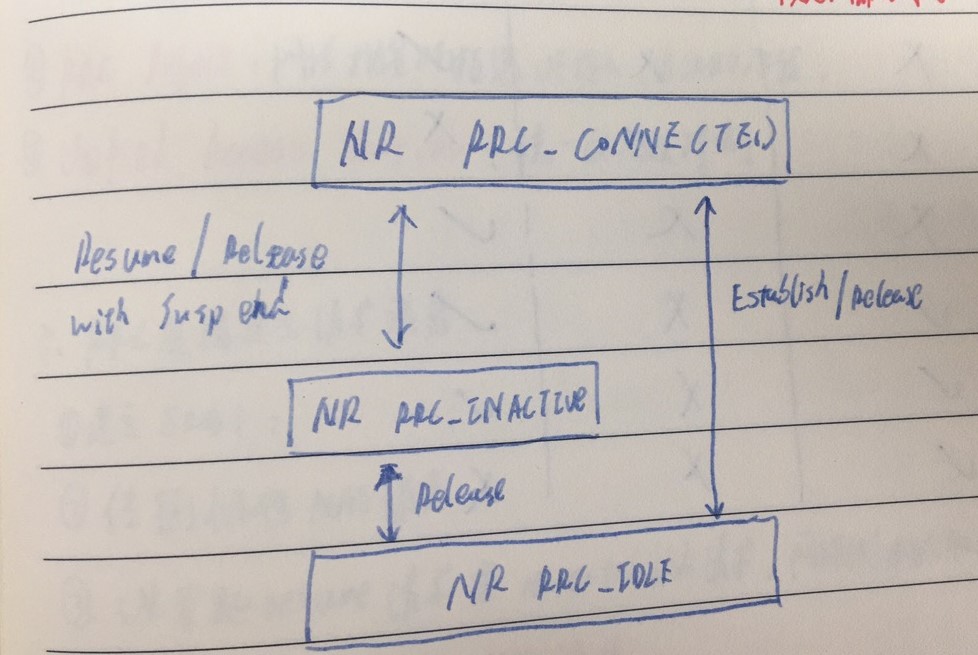 NR RRC_CONNECTED
Resume / Release
with Suspend
Establish / Release
NR RRC_INACTIVE
Release
NR RRC_IDLE